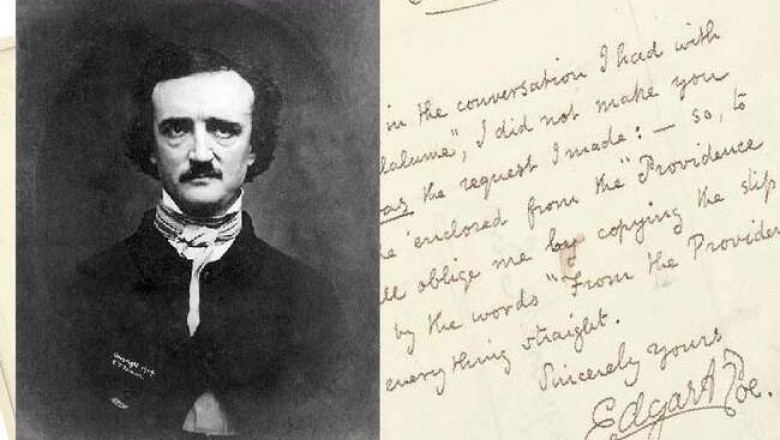 in the conversation I had with
lalume", I did not make you
as the request I made: — so, to
enclosed from the "Providence
oblige me by copying the slip
by the words "From the Providen
everything straight.
Sincerely yours
Edgar A Poe.